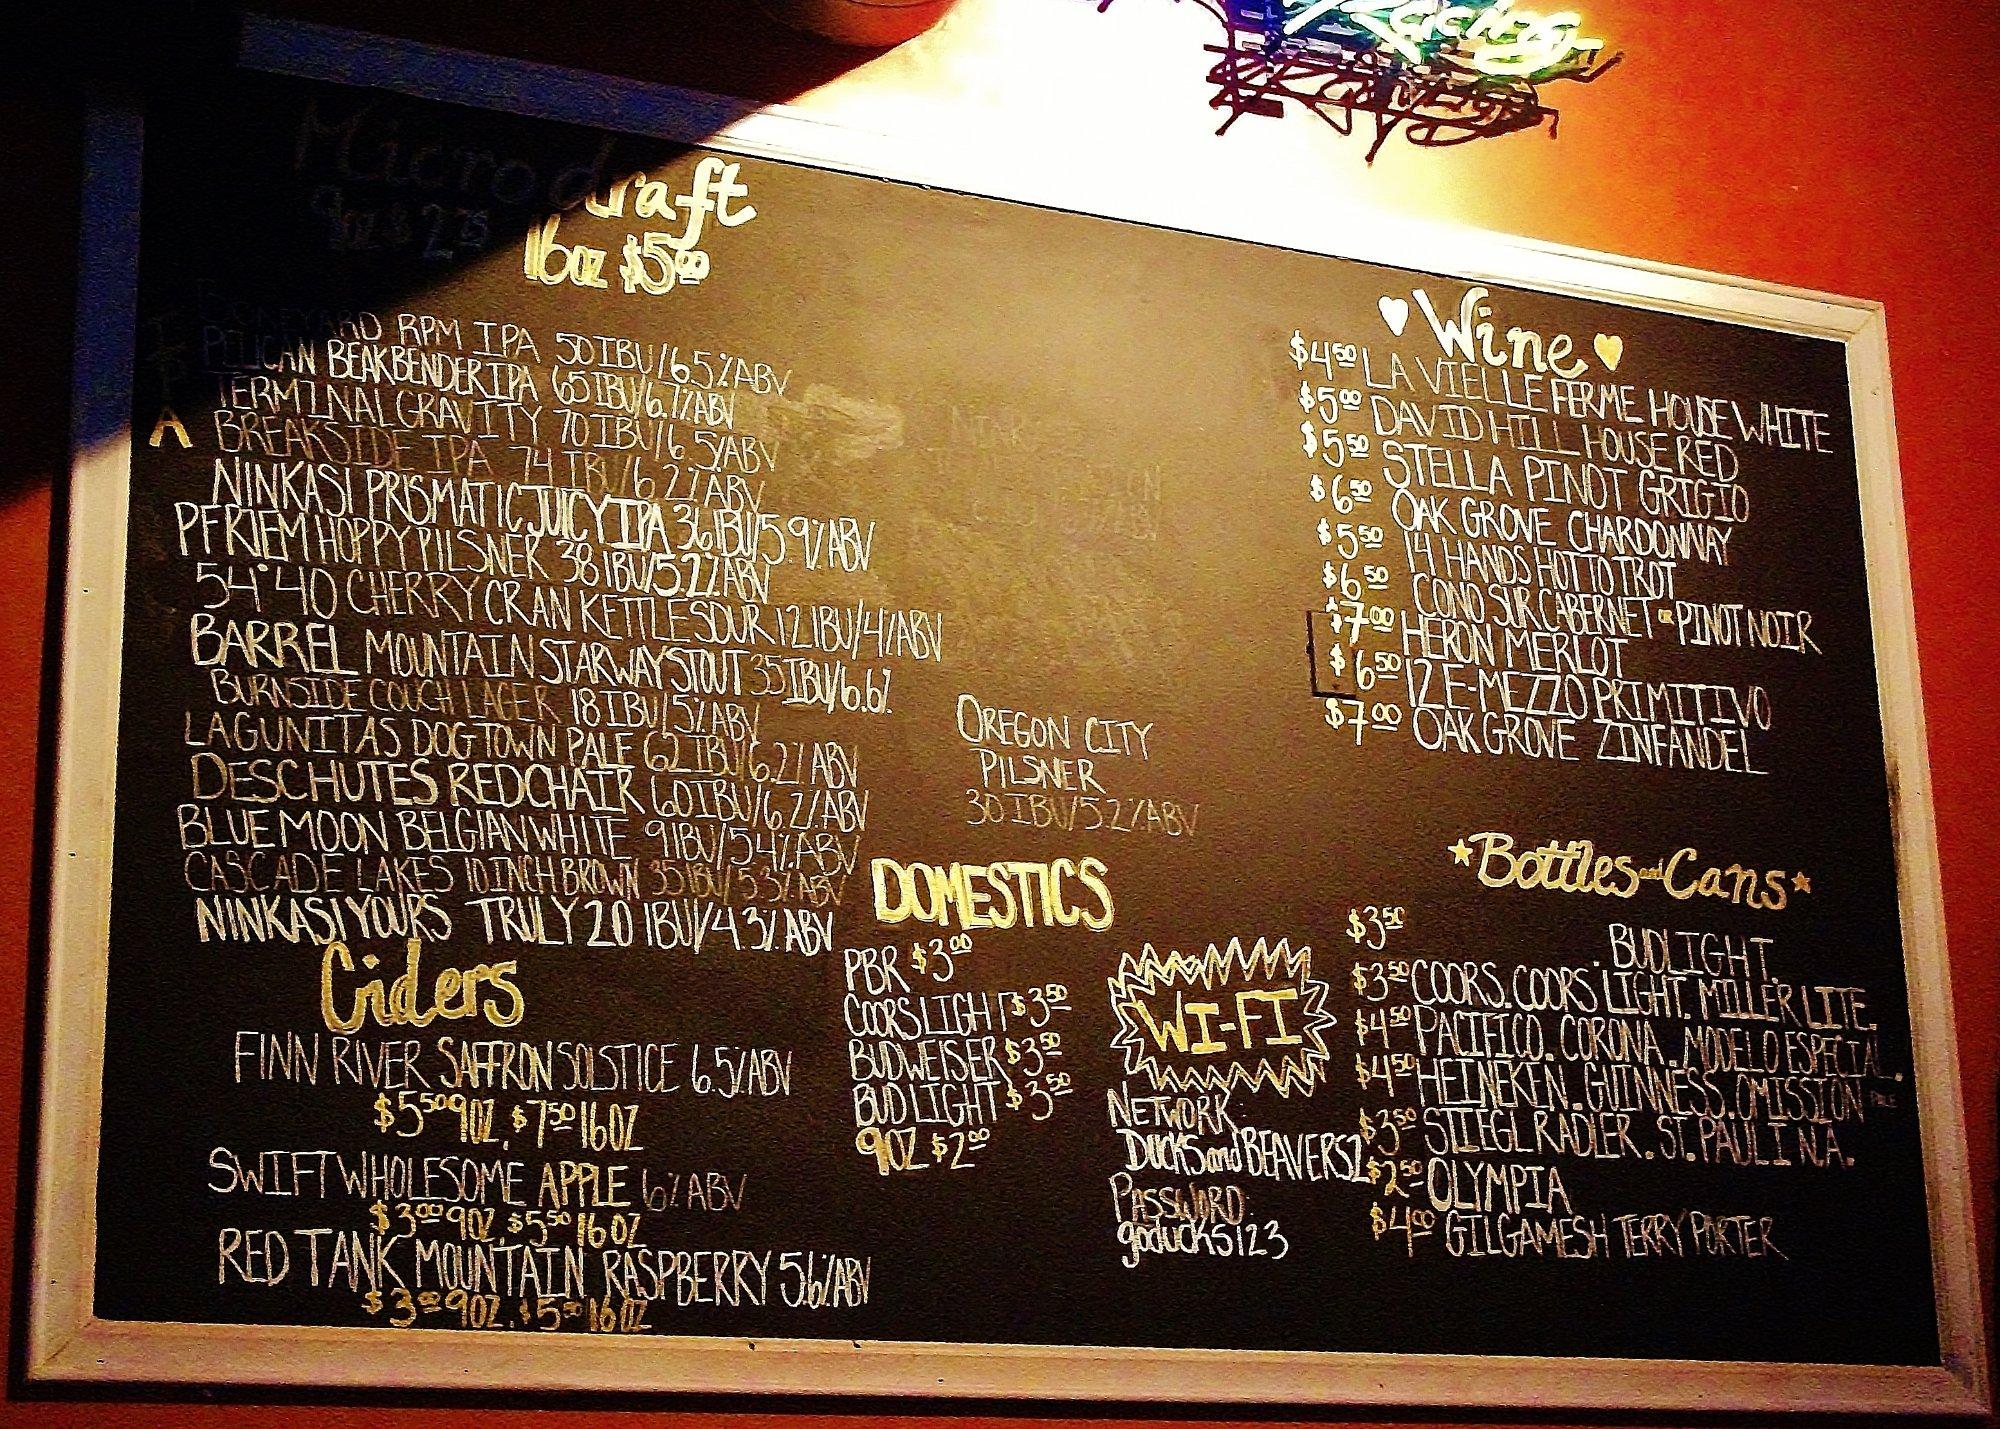 Racing
Microdraft
9oz $2.75
16oz $5.00
I
P
A
BONEYARD RPM IPA 50IBU/6.5%ABV
PELICAN BEAKBENDER IPA 65IBU/6.7%ABV
TERMINAL GRAVITY 70IBU/6.5%ABV
BREAKSIDE IPA 74 IBU/6.2%ABV
NINKASI PRISMATIC JUICY IPA 36IBU/5.9%ABV
PFRIEM HOPPY PILSNER 38IBU/5.2%ABV
54°40 CHERRY CRAN KETTLE SOUR 12IBU/4%ABV
BARREL MOUNTAIN STARWAY STOUT 35IBU/6.6%
BURNSIDE COUCH LAGER 18IBU/5%ABV
LAGUNITAS DOGTOWN PALE 62IBU/6.2%ABV
DESCHUTES RED CHAIR 60IBU/6.2%ABV
BLUE MOON BELGIAN WHITE 9IBU/5.4%ABV
CASCADE LAKES 10 INCH BROWN 35IBU/5.3%ABV
NINKASI YOURS TRULY 20 IBU/4.3%ABV
Ciders
FINN RIVER SAFFRON SOLSTICE 6.5%ABV
$5.50 9OZ, $7.50 16OZ
SWIFT WHOLESOME APPLE 6%ABV
$3.00 9OZ, $5.50 16OZ
RED TANK MOUNTAIN RASPBERRY 5.6%ABV
$3.00 9OZ, $5.50 16OZ
OREGON CITY
PILSNER
30IBU/5.2%ABV
DOMESTICS
PBR $3.00
COORS LIGHT $3.50
BUDWEISER $3.50
BUD LIGHT $3.50
9OZ $2.00
WI-FI
NETWORK:
DUCKSandBEAVERS2
PASSWORD:
goducks123
Wine
$4.50 LA VIELLE FERME HOUSE WHITE
$5.00 DAVID HILL HOUSE RED
$5.50 STELLA PINOT GRIGIO
$6.50 OAK GROVE CHARDONNAY
$5.50 14 HANDS HOT TO TROT
$6.50 CONO SUR CABERNET or PINOT NOIR
$7.00 HERON MERLOT
$6.50 IZE-MEZZO PRIMITIVO
$7.00 OAK GROVE ZINFANDEL
Bottles and Cans
$3.50 . BUDLIGHT.
$3.50 COORS. COORS LIGHT. MILLER LITE.
$4.50 PACIFICO. CORONA. MODELO ESPECIAL.
$4.50 HEINEKEN. GUINNESS. OMISSION PALE
$3.50 STIEGL RADLER. ST. PAULI N.A.
$2.50 OLYMPIA
$4.00 GILGAMESH TERRY PORTER